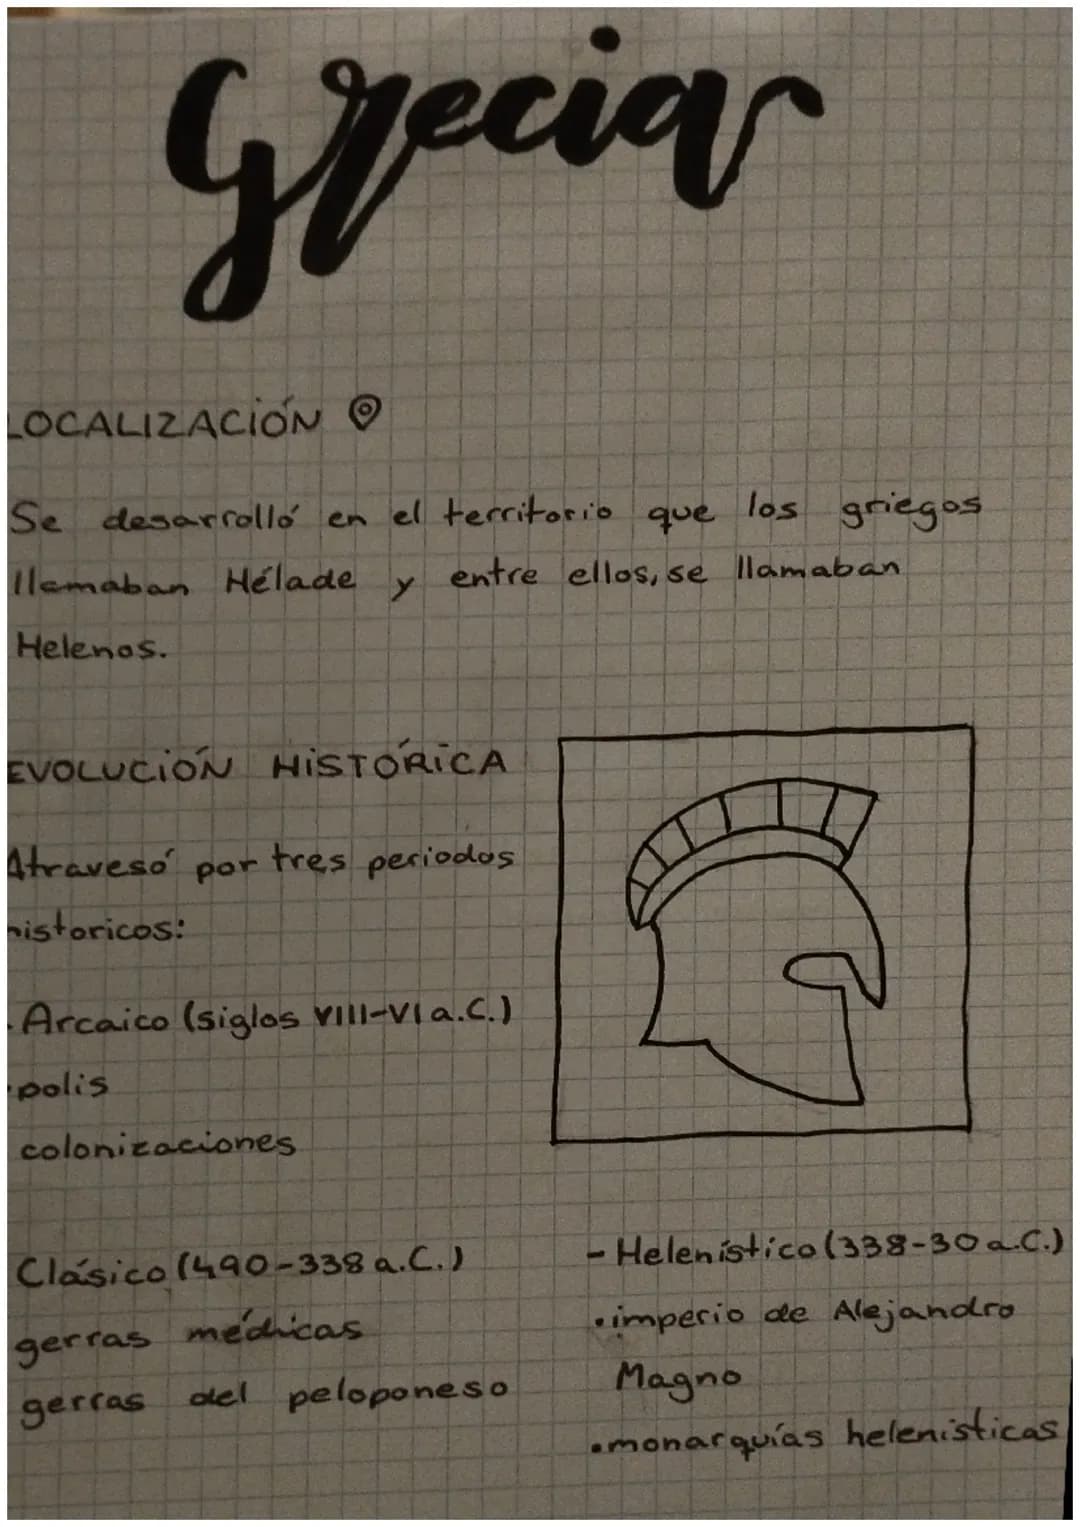 Grecia
LOCALIZACIÓN
Se desarrolló en el territorio que los griegos
llamaban Hélade y entre ellos, se llamaban
Helenos.
EVOLUCIÓN HISTÓRICA
Atravesó por tres periodos
historicos:
- Arcaico (siglos VIII-VI a.C.)
·polis
colonizaciones
Clásico (490-338 a.C.)
gerras médicas
gerras del peloponeso
- Helenístico (338-30 a.C.)
·imperio de Alejandro
Magno
·monarquías helenísticas